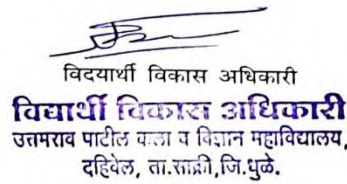 विदयार्थी विकास अधिकारी
विद्यार्थी विकास अधिकारी
उत्तमराव पाटील कला व विज्ञान महाविद्यालय,
दहिवेल, ता.साक्री,जि.धुळे.